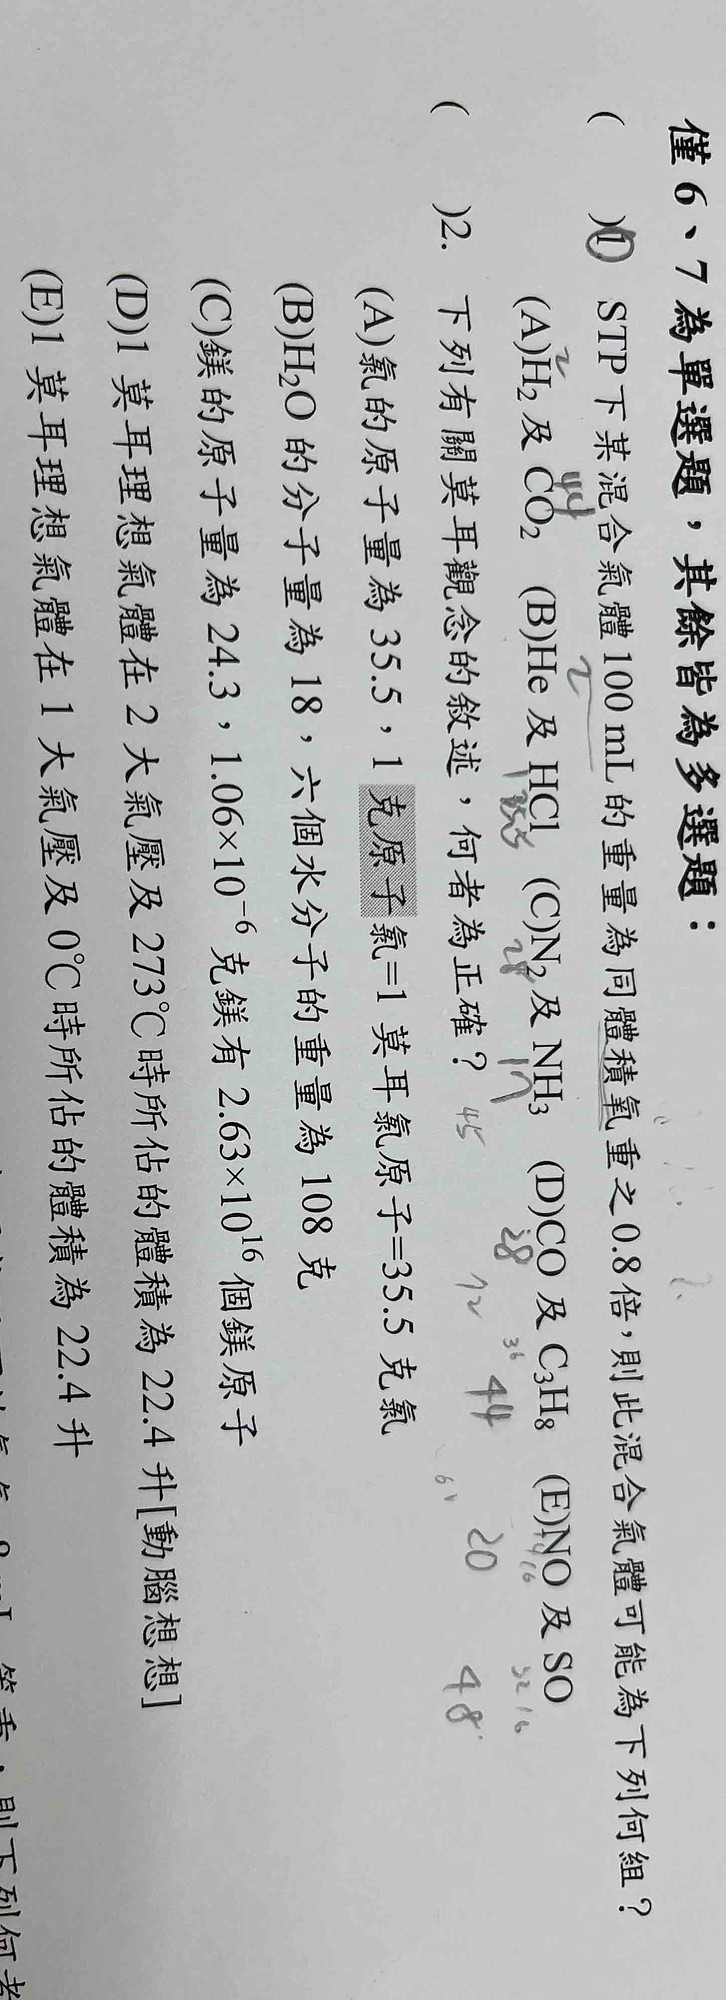 僅 6、7 為單選題，其餘皆為多選題：
(　)1. STP 下某混合氣體 100 mL 的重量為同體積氧重之 0.8 倍，則此混合氣體可能為下列何組？
(A)H₂ 及 CO₂　(B)He 及 HCl　(C)N₂ 及 NH₃　(D)CO 及 C₃H₈　(E)NO 及 SO
2 44 2 1 35.5 28 17 28 36 14 16 32 16
(　)2. 下列有關莫耳觀念的敘述，何者為正確？
45 12 44 20 48
(A)氯的原子量為 35.5，1 克原子氯=1 莫耳氯原子=35.5 克氯
(B)H₂O 的分子量為 18，六個水分子的重量為 108 克
(C)鎂的原子量為 24.3，1.06×10⁻⁶ 克鎂有 2.63×10¹⁶ 個鎂原子
(D)1 莫耳理想氣體在 2 大氣壓及 273℃ 時所佔的體積為 22.4 升[動腦想想]
(E)1 莫耳理想氣體在 1 大氣壓及 0℃ 時所佔的體積為 22.4 升